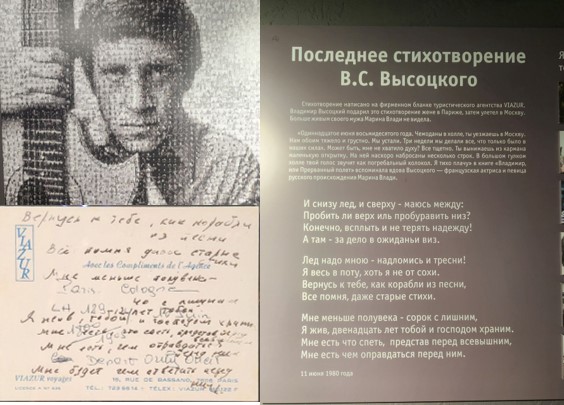 Вернусь к тебе, как корабли
из песни
Всё помня даже старые
стихи
VIAZUR
Avec les Compliments de l'Agence
Мне меньше полувека
Cologne
Мне есть, чем оправдаться
VIAZUR voyages
19, RUE DE BASSANO, 75116 PARIS
Последнее стихотворение
В.С. Высоцкого
Стихотворение написано на фирменном бланке туристического агентства VIAZUR.
Владимир Высоцкий подарил это стихотворение жене в Париже, затем улетел в Москву.
Больше живым своего мужа Марина Влади не видела.
«Одиннадцатое июня восьмидесятого года. Чемоданы в холле, ты уезжаешь в Москву.
Нам обоим тяжело и грустно. Мы устали. Три недели мы делали все, что только было в
наших силах. Может быть, мне не хватило духу? Все тщетно. Ты вынимаешь из кармана
маленькую открытку. На ней наскоро набросаны несколько строк. В большом гулком
холле твой голос звучит как погребальный колокол. Я тихо плачу» в книге «Владимир,
или Прерванный полет» вспоминала вдова Высоцкого — французская актриса и певица
русского происхождения Марина Влади.
И снизу лед, и сверху - маюсь между:
Пробить ли верх иль пробуравить низ?
Конечно, всплыть и не терять надежду!
А там - за дело в ожиданьи виз.
Лед надо мною - надломись и тресни!
Я весь в поту, хоть я не от сохи.
Вернусь к тебе, как корабли из песни,
Все помня, даже старые стихи.
Мне меньше полувека - сорок с лишним,
Я жив, двенадцать лет тобой и господом храним.
Мне есть что спеть, представ перед всевышним,
Мне есть чем оправдаться перед ним.
11 июня 1980 года